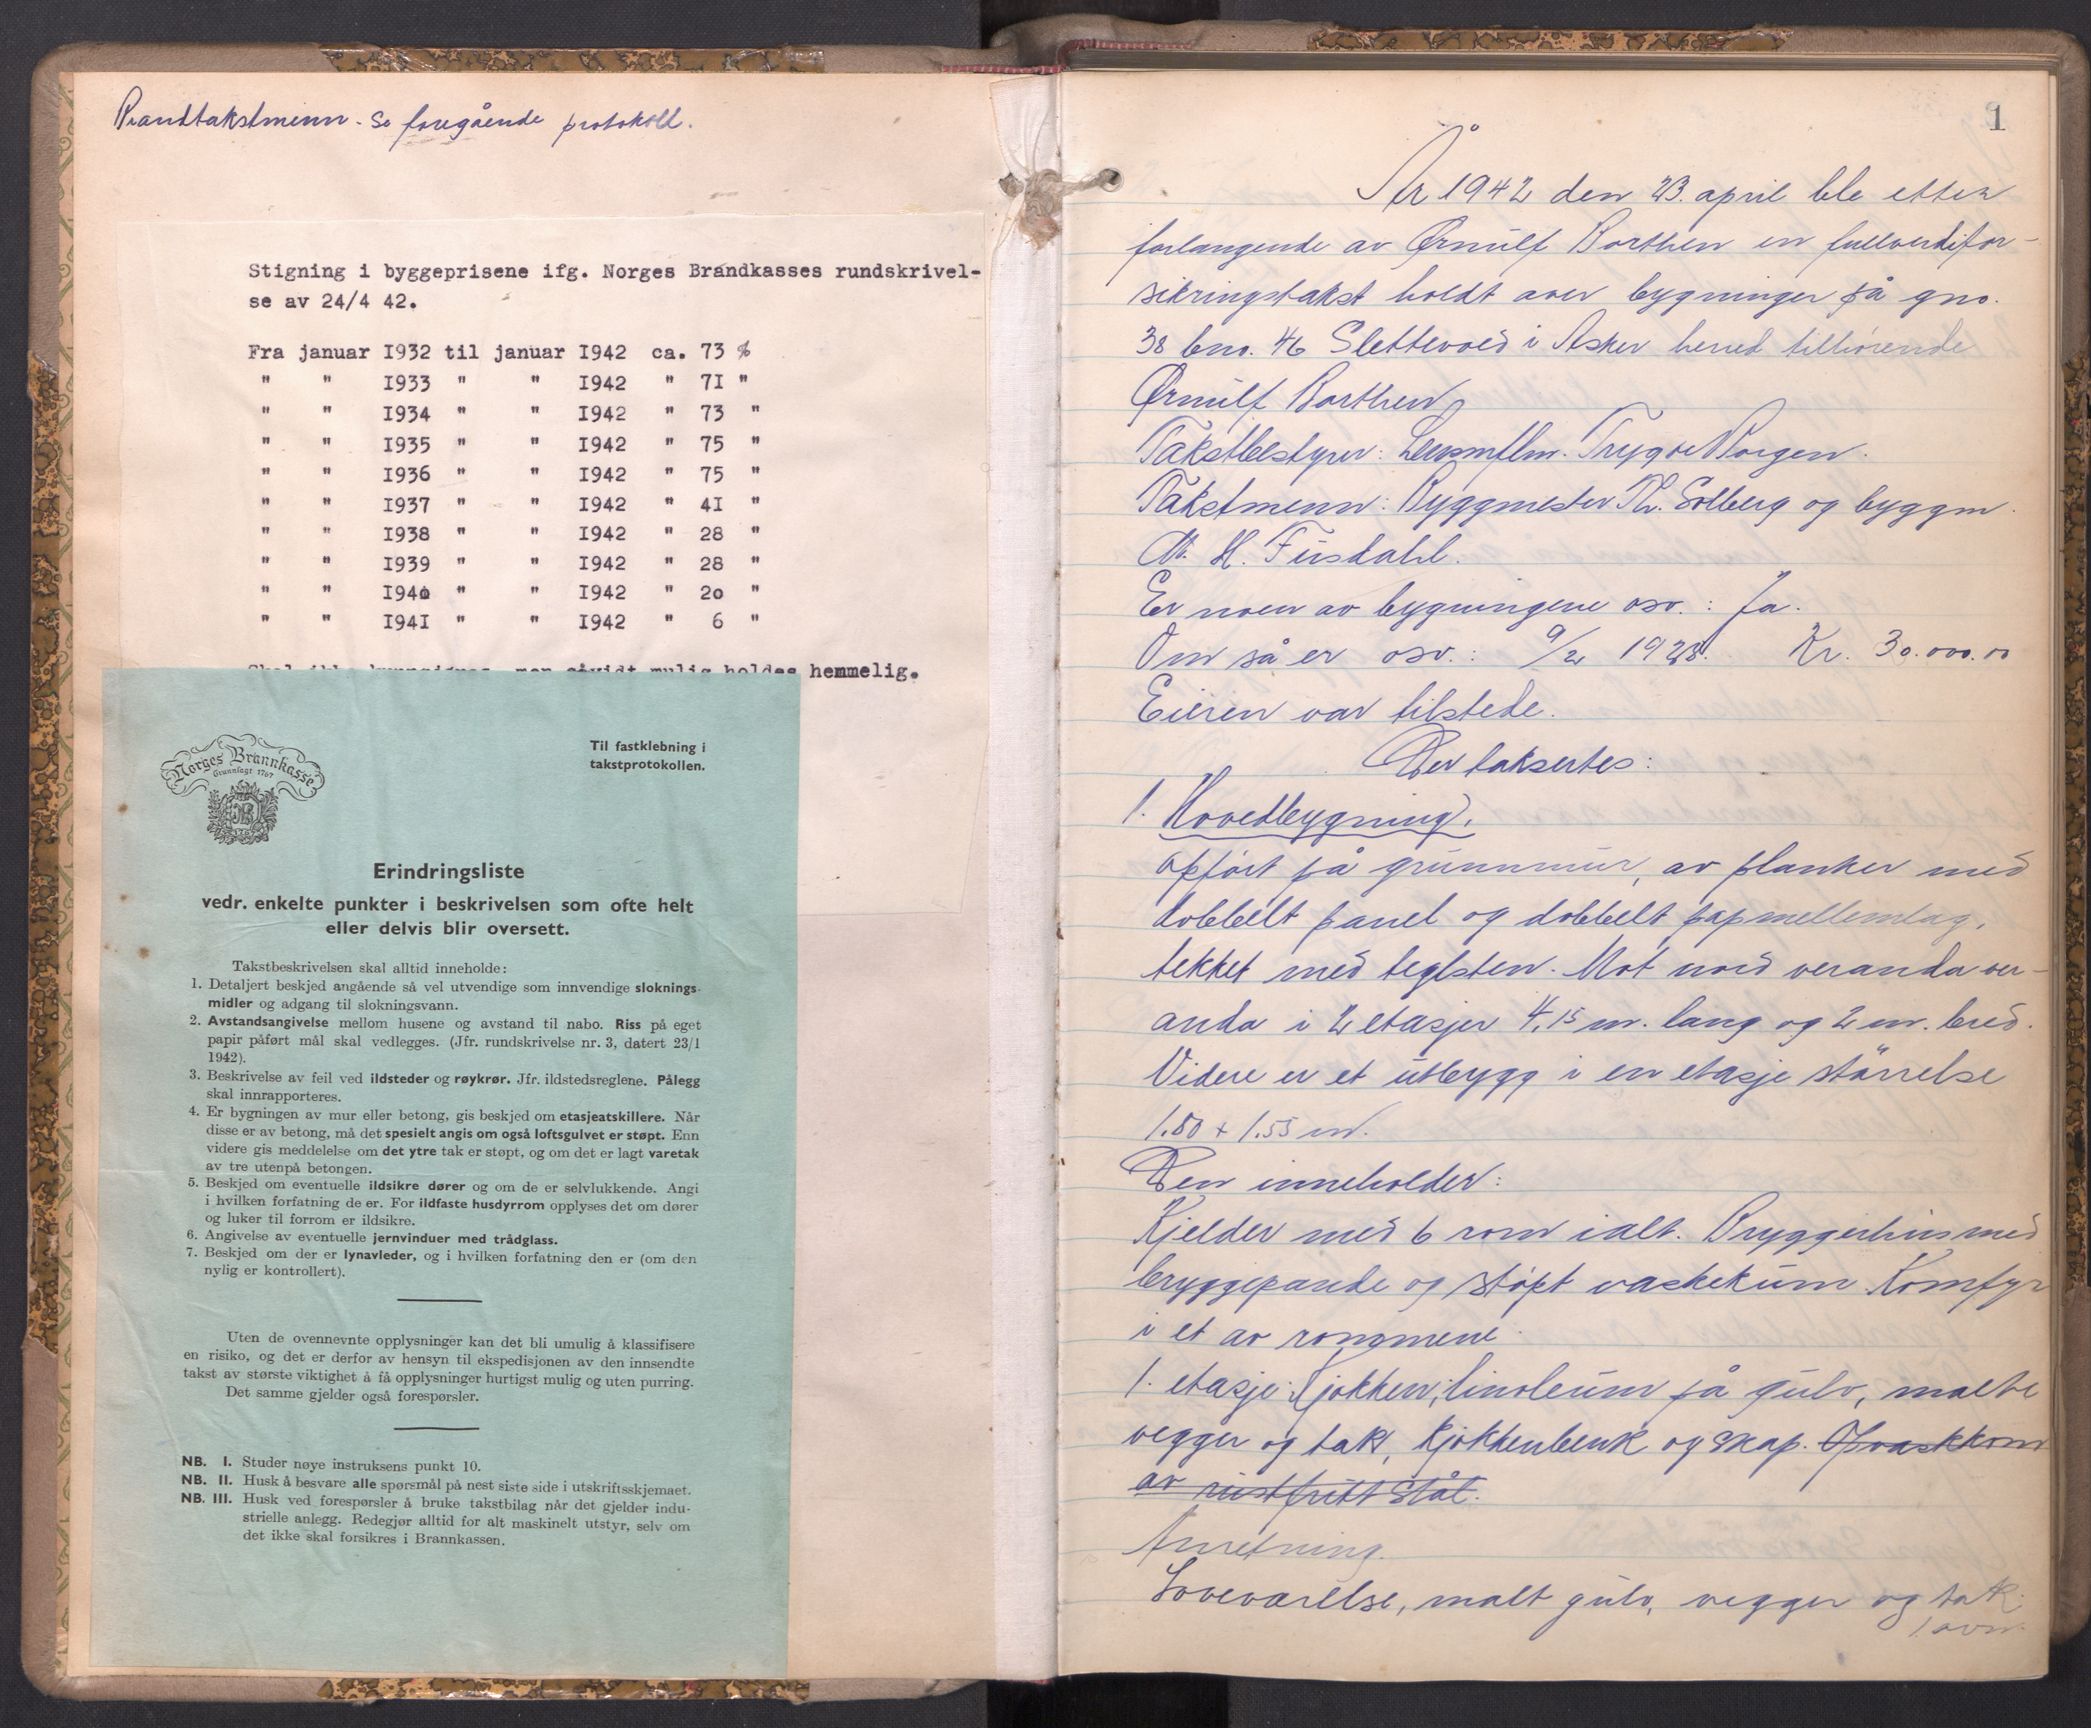 Brandtakstmenn - Se foregående protokoll.
Stigning i byggeprisene ifg. Norges Brandkasses rundskrivel-
se av 24/4 42.
Fra januar I932 til januar I942 ca. 73 %
" " I933 " " I942 " 7I "
" " I934 " " I942 " 73 "
" " I935 " " I942 " 75 "
" " I936 " " I942 " 75 "
" " I937 " " I942 " 4I "
" " I938 " " I942 " 28 "
" " I939 " " I942 " 28 "
" " I940 " " I942 " 2o "
" " I94I " " I942 " 6 "
men såvidt mulig holdes hemmelig.
Norges Brannkasse
Grunnlagt 1767
NB
1767
Til fastklebning i
takstprotokollen.
Erindringsliste
vedr. enkelte punkter i beskrivelsen som ofte helt
eller delvis blir oversett.
Takstbeskrivelsen skal alltid inneholde:
1. Detaljert beskjed angående så vel utvendige som innvendige sloknings-
midler og adgang til slokningsvann.
2. Avstandsangivelse mellom husene og avstand til nabo. Riss på eget
papir påført mål skal vedlegges. (Jfr. rundskrivelse nr. 3, datert 23/1
1942).
3. Beskrivelse av feil ved ildsteder og røykrør. Jfr. ildstedsreglene. Pålegg
skal innrapporteres.
4. Er bygningen av mur eller betong, gis beskjed om etasjeatskillere. Når
disse er av betong, må det spesielt angis om også loftsgulvet er støpt. Enn
videre gis meddelelse om det ytre tak er støpt, og om det er lagt varetak
av tre utenpå betongen.
5. Beskjed om eventuelle ildsikre dører og om de er selvlukkende. Angi
i hvilken forfatning de er. For ildfaste husdyrrom opplyses det om dører
og luker til forrom er ildsikre.
6. Angivelse av eventuelle jernvinduer med trådglass.
7. Beskjed om der er lynavleder, og i hvilken forfatning den er (om den
nylig er kontrollert).
Uten de ovennevnte opplysninger kan det bli umulig å klassifisere
en risiko, og det er derfor av hensyn til ekspedisjonen av den innsendte
takst av største viktighet å få opplysninger hurtigst mulig og uten purring.
Det samme gjelder også forespørsler.
NB. I. Studer nøye instruksens punkt 10.
NB. II. Husk å besvare alle spørsmål på nest siste side i utskriftsskjemaet.
NB. III. Husk ved forespørsler å bruke takstbilag når det gjelder indu-
strielle anlegg. Redegjør alltid for alt maskinelt utstyr, selv om
det ikke skal forsikres i Brannkassen.
1
År 1942 den 23. april ble etter
forlangende av Ørnulf Borthen en fullverdifor-
sikringstakst holdt over bygninger på gno.
38 bno. 46 Slettevold i Asker herred tilhörende
Ørnulf Borthen
Takstbestyrer: Lensmflm. Trygve Borgen.
Takstmenn: Byggmester Th. Solberg og byggm.
M. H. Fusdahl.
Er noen av bygningene osv.: Ja.
Om så er osv.: 9/2 1928. Kr. 30.000.00
Eieren var tilstede.
Der taksertes:
1. Hovedbygning,
opført på grunnmur, av planker med
dobbelt panel og dobbelt papmellemlag,
tekket med teglsten. Mot nord veranda ver-
anda i 2 etasjer 4,15 m. lang og 2 m. bred.
Videre er et utbygg i en etasje större​lse
1.80 + 1.55 m.
Den inneholder:
Kjelder med 6 rom ialt. Bryggerhus med
bryggepande og støpt vaskekum. Komfyr
i et av rommene.
1. etasje: Kjökken; linoleum på gulv, malte
vegger og tak, kjökkenbenk og skap. Opvaskkum
av rustfritt stål.
Anretning.
Soveværelse, malt gulv, vegger og tak.
1 ovn.